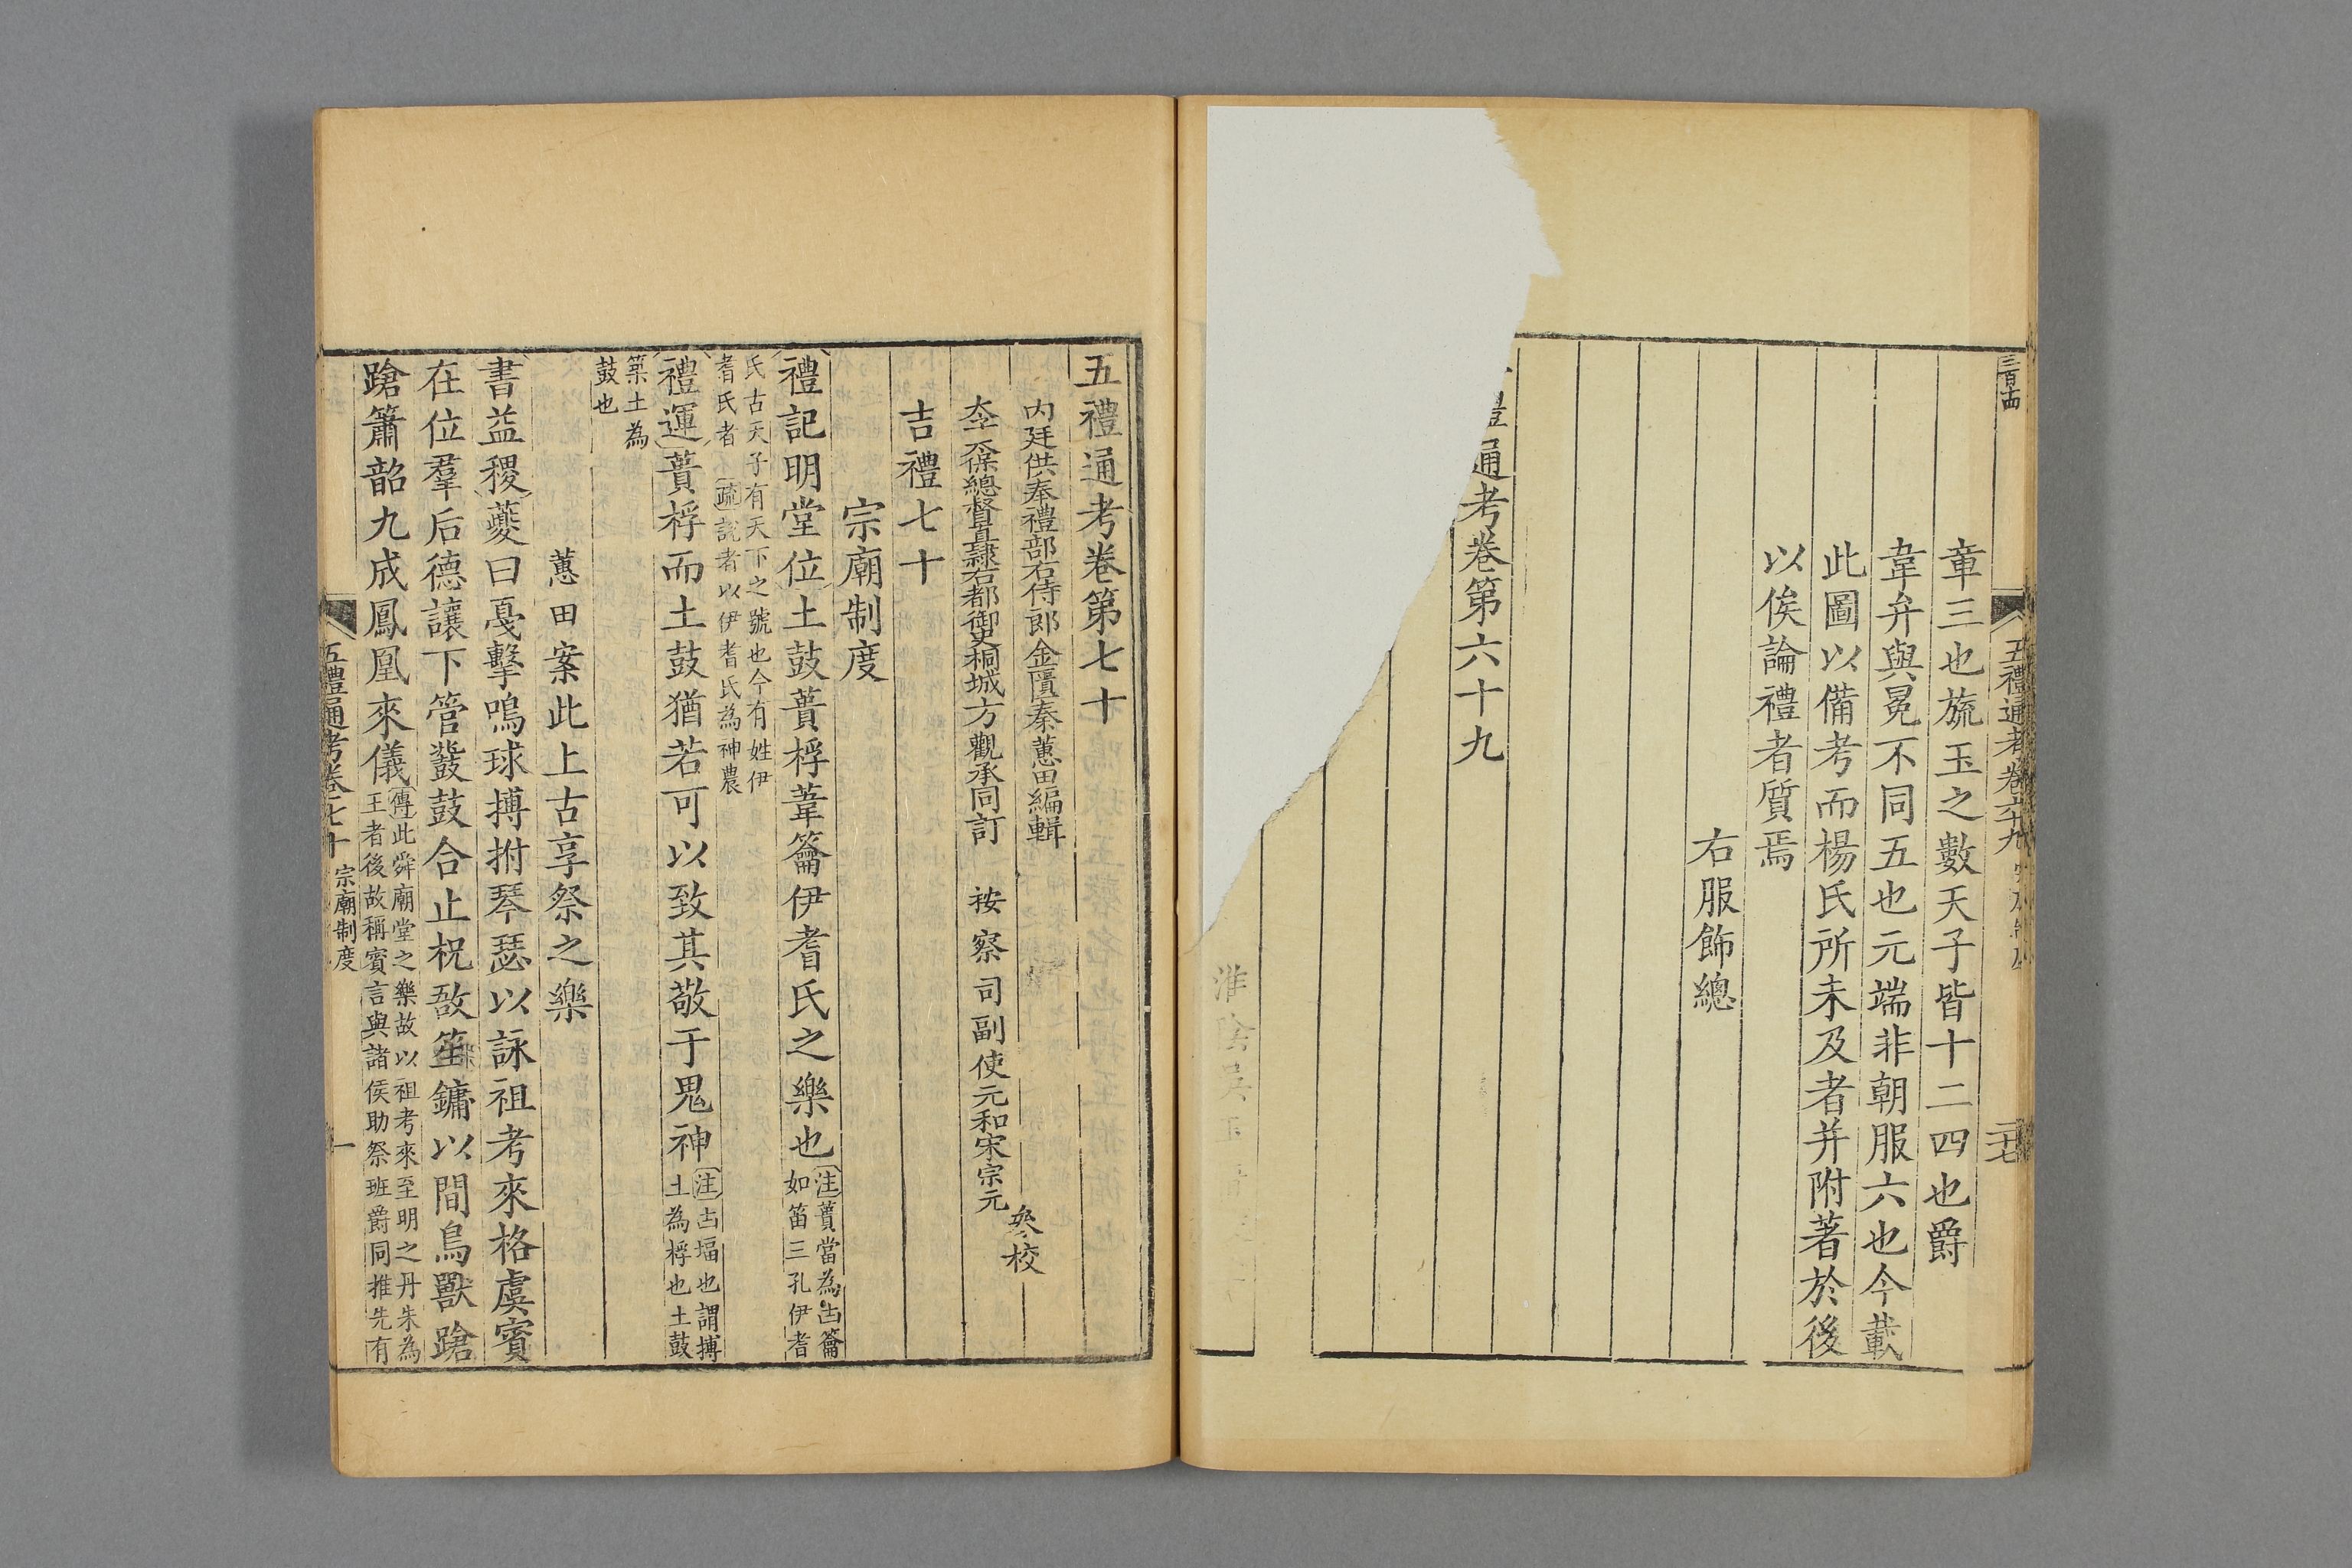 三百十四
五禮通考卷六十九
二十七
章三也旒玉之數天子皆十二四也爵
韋弁與冕不同五也元端非朝服六也今載
此圖以備考而楊氏所未及者并附著於後
以俟論禮者質焉
右服飾總
通考卷第六十九
淮陰吳
五禮通考卷第七十
內廷供奉禮部右侍郎金匱秦蕙田編輯
太子太保總督直隸右都御史桐城方觀承同訂
按察司副使元和宋宗元
參校
吉禮七十
宗廟制度
禮記明堂位土鼓蕢桴葦籥伊耆氏之樂也
注蕢當為凷籥
如笛三孔伊耆
氏古天子有天下之號也今有姓伊
耆氏者 疏說者以伊耆氏為神農
禮運蕢桴而土鼓猶若可以致其敬于鬼神
注凷堛也謂摶
土為桴也土鼓
築土為
鼓也
蕙田案此上古享祭之樂
書益稷夔曰戛擊鳴球搏拊琴瑟以詠祖考來格虞賓
在位羣后德讓下管鼗鼓合止柷敔笙鏞以間鳥獸蹌
蹌簫韶九成鳳凰來儀
傳此舜廟堂之樂故以祖考來至明之丹朱為
王者後故稱賓言與諸侯助祭班爵同推先有
五禮通考卷七十 宗廟制度
一